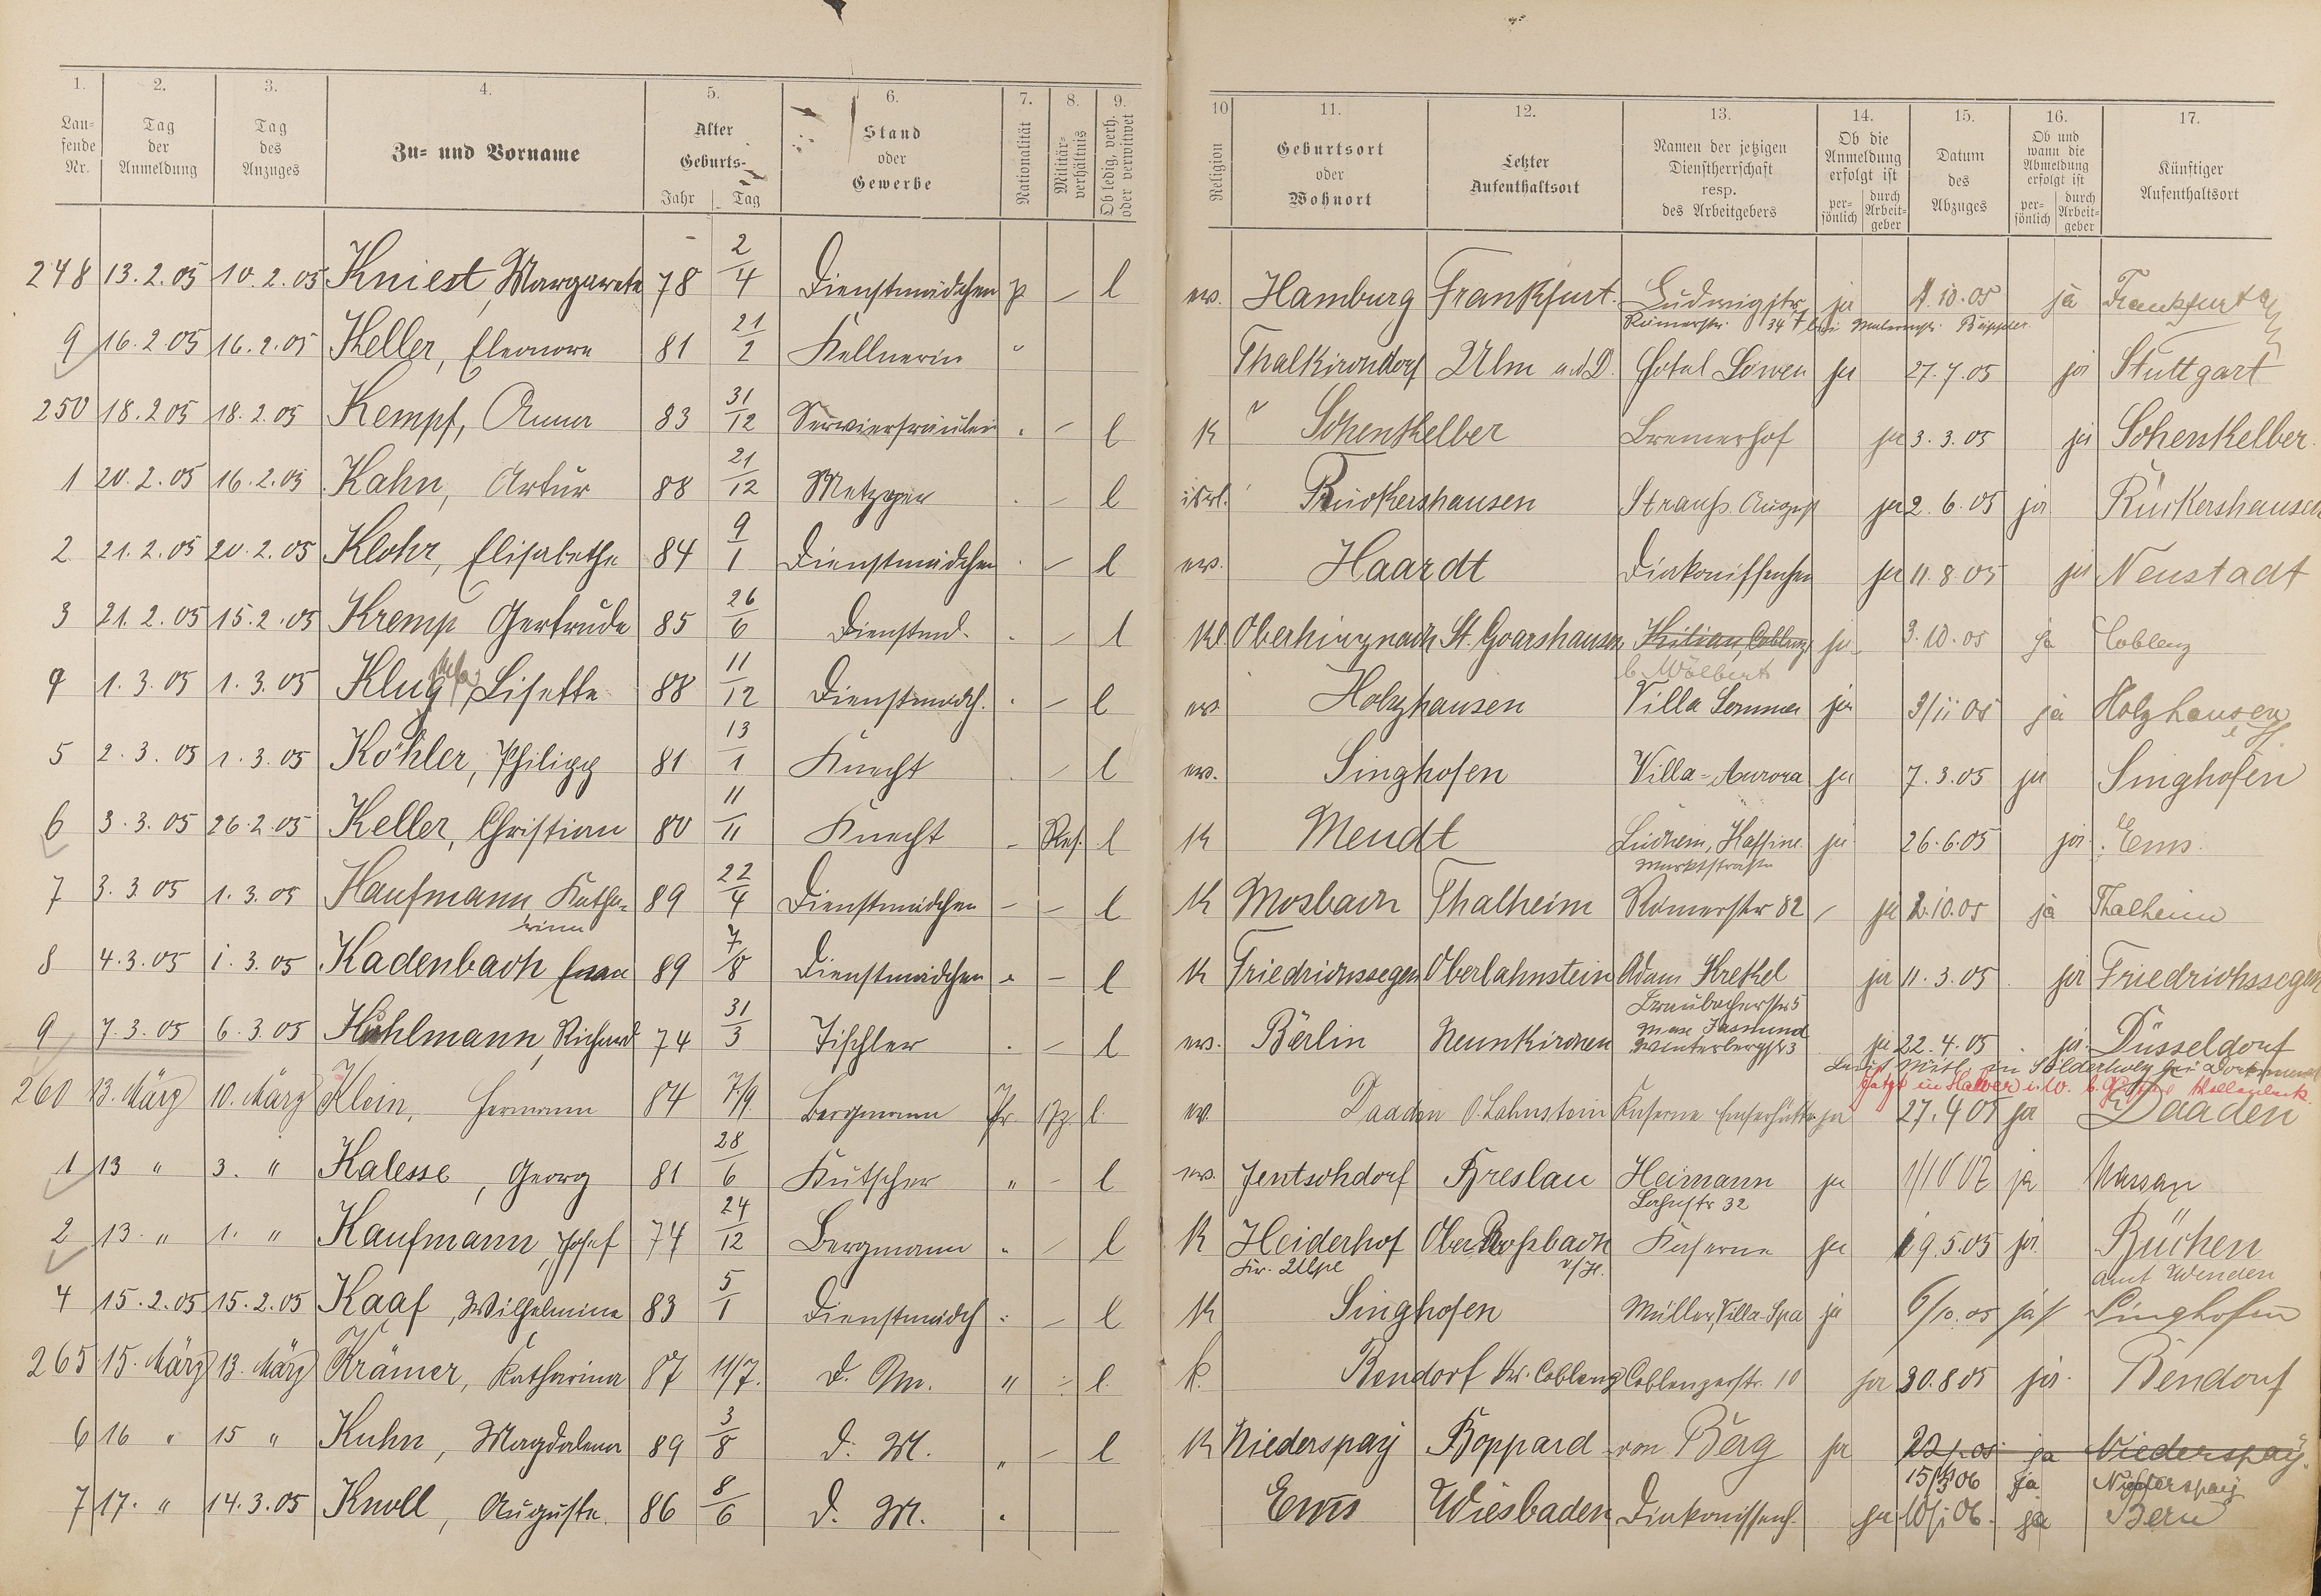 1. 2. 3. 4. 5. 6. 7. 8. 9. 10 11. 12. 13. 14. 15. 16. 17.
Laufende Nr. Tag der Anmeldung Tag des Anzuges Zu- und Vorname Alter Geburts- Jahr Tag Stand oder Gewerbe Nationalität Militärverhältnis Ob ledig, verh. oder verwitwet Religion Geburtsort oder Wohnort Letzter Aufenthaltsort Namen der jetzigen Dienstherrschaft resp. des Arbeitgebers Ob die Anmeldung erfolgt ist persönlich durch Arbeitgeber Datum des Abzuges Ob und wann die Abmeldung erfolgt ist persönlich durch Arbeitgeber Künftiger Aufenthaltsort
248 13.2.05 10.2.05 Kniest, Margarete 78 2/4 Dienstmädchen p – l ev. Hamburg Frankfurt Ludwigstr. ja 1.10.05 ja Frankfurt
Römerstr. 34
9 16.2.05 16.2.05 Keller, Eleonore 81 21/2 Kellnerin " Thalkirchdorf Ulm a.d.D. Hotel Löwen ja 27.7.05 ja Stuttgart
250 18.2.05 18.2.05 Kempf, Anna 83 31/12 Servierfräulein . – l K Schenkelber Bremerhof ja 3.3.05 ja Schenkelber
1 20.2.05 16.2.05 Kahn, Artur 88 21/12 Metzger . – l isrl. Rückershausen Strauss August ja 2.6.05 ja Rückershausen
2 21.2.05 20.2.05 Klohr, Elisabethe 84 9/1 Dienstmädchen . – l ev. Haardt Diakonissenhen ja 11.8.05 ja Neustadt
3 21.2.05 15.2.05 Kremp Gertrude 85 26/6 Dienstmd. . – l Kl. St. Goarshausen Kilian, Coblenz ja 3.10.05 ja Coblenz
b. Wölbert
4 1.3.05 1.3.05 Klug, Lisette 88 11/12 Dienstmädch. . – l ev. Holzhausen Villa Sommer ja 3/11 05 ja Holzhausen
5 2.3.05 1.3.05 Köhler, Philipp 81 13/1 Knecht . – l ev. Singhofen Villa-Aurora ja 7.3.05 ja Singhofen
6 3.3.05 26.2.05 Keller, Christian 80 11/11 Knecht . Res. l K Mendt ja 26.6.05 ja Ems.
Marktstrasse
7 3.3.05 1.3.05 Kaufmann Katha- 89 22/4 Dienstmädchen – – l K Mosbach Thalheim Römerstr 82 – ja 2.10.05 ja Thalheim
rina
8 4.3.05 1.3.05 Kadenbach 89 7/8 Dienstmädchen . – l K Friedrichssegen Oberlahnstein Adam Krekel ja 11.3.05 ja Friedrichssegen
Braubacherstr 5
9 7.3.05 6.3.05 Kuhlmann, Richard 74 31/3 Tischler . – l ev. Berlin Neunkirchen Max Jasmund ja 22.4.05 ja Düsseldorf
Winterbergstr 3
260 13. März 10. März Klein, Hermann 84 7/9 Bergmann Pr. l. ev. Daaden O.Lahnstein Kaserne Emserhütte ja 27.4 05 ja Daaden
1 13 " 3. " Kalesse, Georg 81 28/6 Kutscher " – l ev. Jentschdorf Breslau Heimann ja 1/10 07 ja Nassau
Lahnstr 32
2 13. " 1. " Kaufmann, Josef 74 24/12 Bergmann " – l K Heiderhof Ober Rossbach Kaserne ja 19.5.05 ja Büchen
Kr. Olpe v/H. amt Wenden
4 15.2.05 15.2.05 Kaaf, Wilhelmine 83 5/1 Dienstmädch : – l K Singhofen Müller, Villa-Spa ja 6/10.05 ja Singhofen
265 15. März 13. März Krämer, Katharina 87 11/7. d. M. " – l. k. Bendorf Kr. Coblenz Coblenzerstr. 10 ja 30.8 05 ja Bendorf
6 16 " 15 " Kuhn, Magdalena 89 3/8 d. M. " – l K Niederspay Boppard von Berg ja ja Niederspay.
15/3 06 ja Niederspay
7 17. " 14.3.05 Knoll, Auguste 86 8/6 d. M. . Ems Wiesbaden Diakonissenh. ja 10/1 06. ja Bern